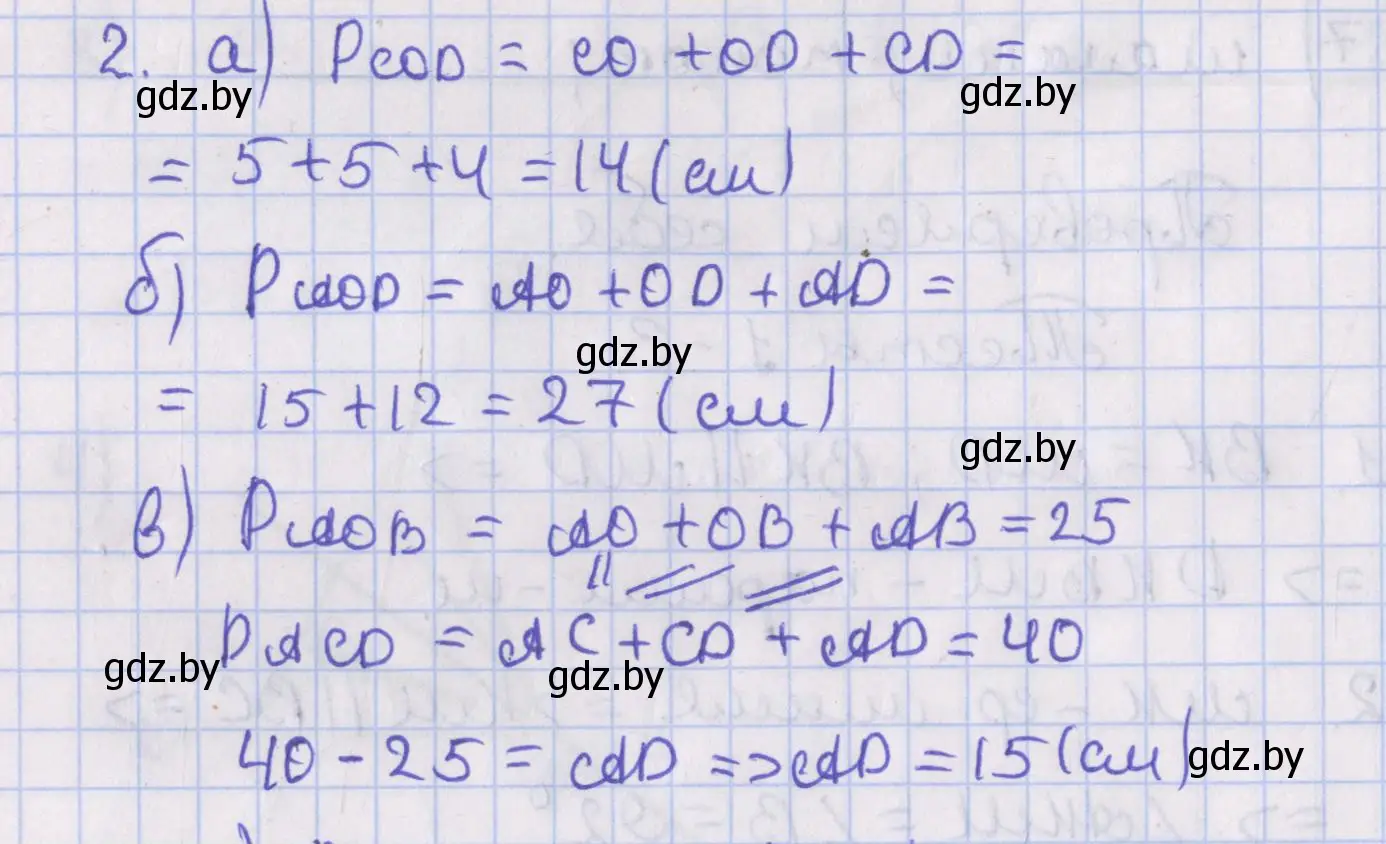 2. а) PCOD = CO + OD + CD =
gdz.by gdz.by
= 5 + 5 + 4 = 14 (см)
б) PAOD = AO + OD + AD =
gdz.by
= 15 + 12 = 27 (см)
gdz.by
в) PAOB = AO + OB + AB = 25
PACD = AC + CD + AD = 40
gdz.by gdz.by
40 - 25 = AD => AD = 15 (см)
gdz.by